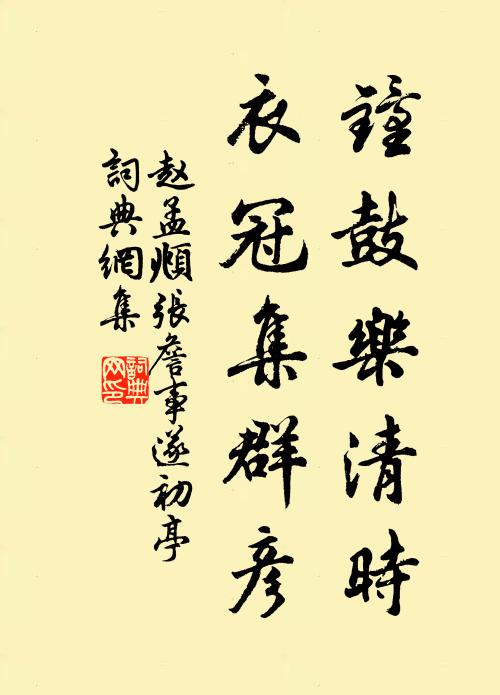 鐘鼓樂清時
衣冠集群彦
赵孟頫張詹事遂初亭
詞典網集
詞典
网印